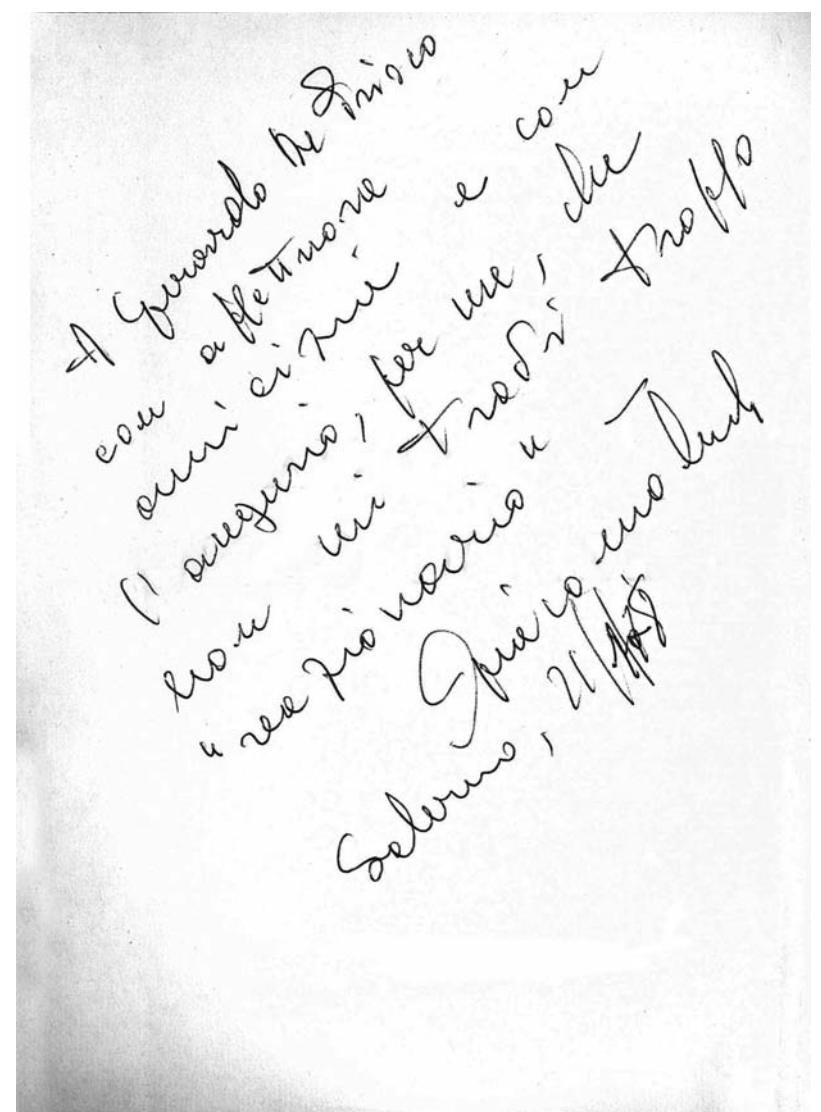 A Gerardo De Prisco
con affettuosa
amicizia e con
l'augurio, per me, che
non mi trovi troppo
"reazionario"
Salerno, 21/